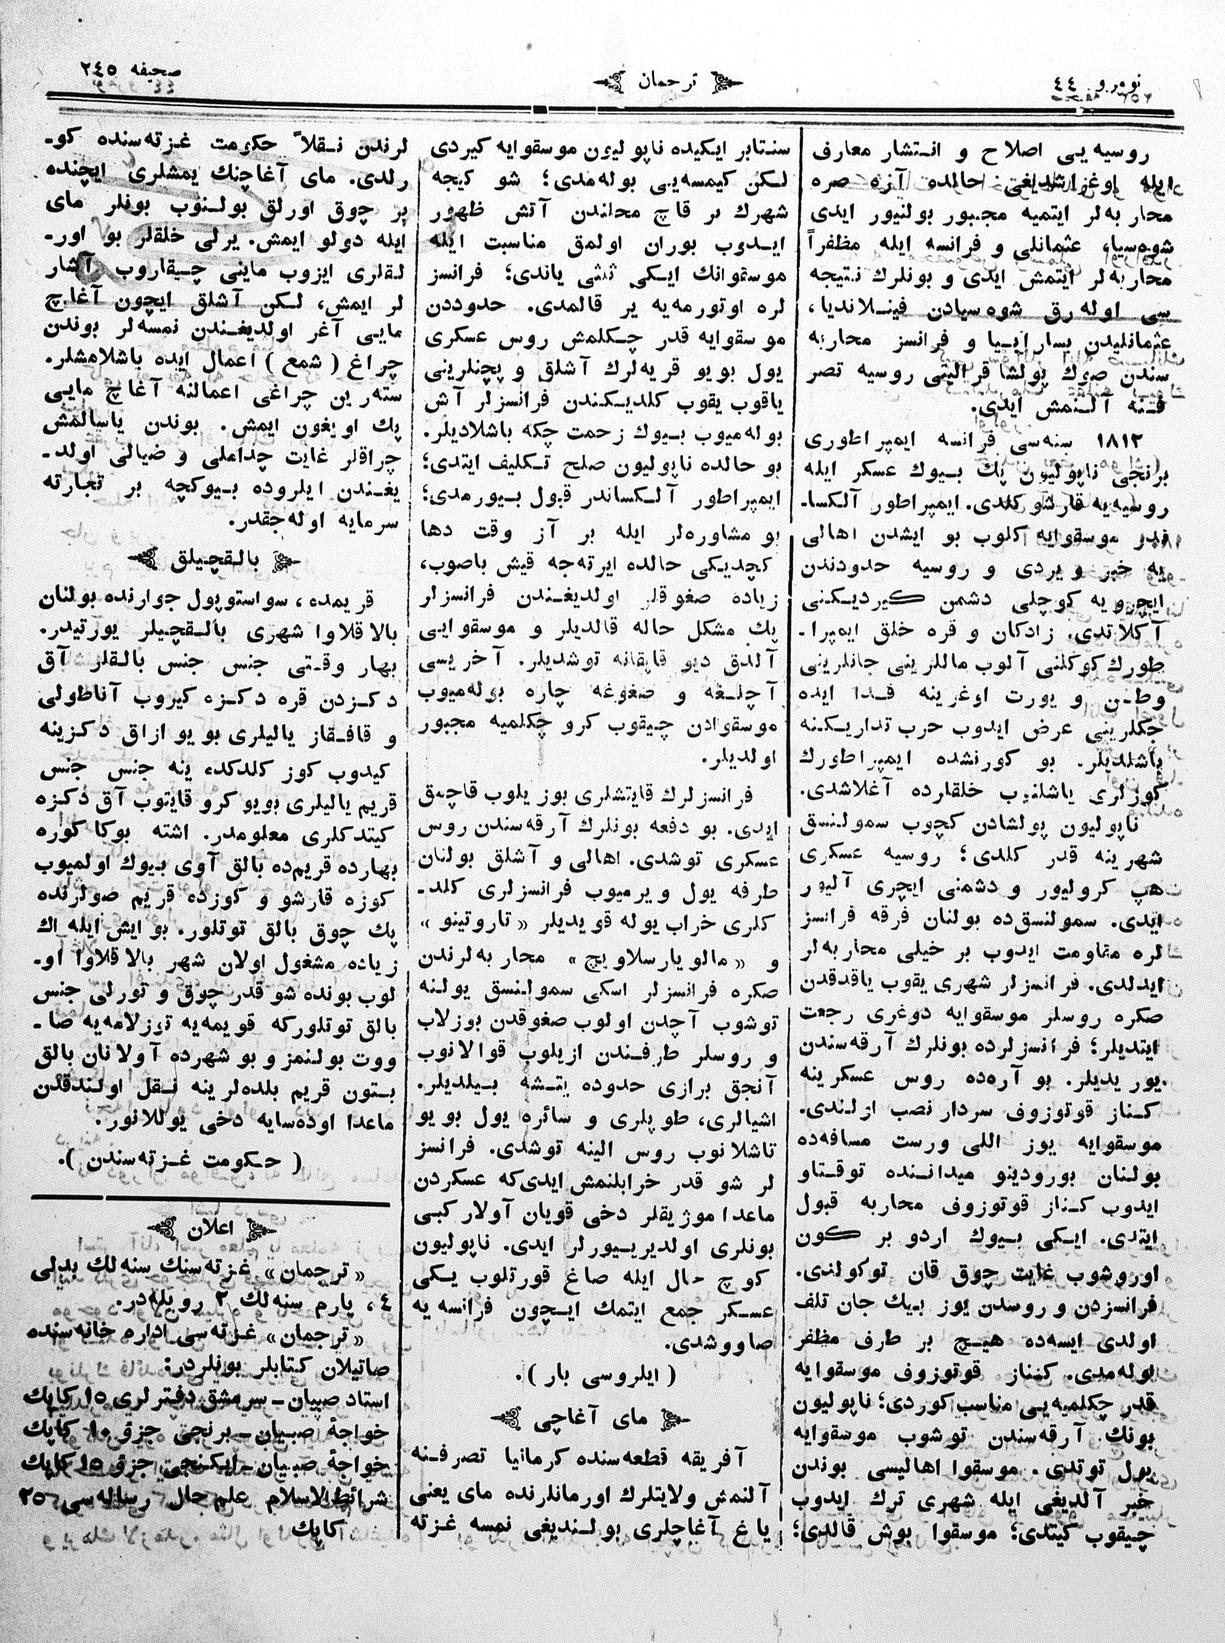 نومرو ٤٤
ترجمان
صحیفه ٢٤٥
روسیه‌یی اصلاح و انتشار معارف
ایله اوغراشدیغی حالده آره صره
محاربه‌لر ایتمیه مجبور بولنیور ایدی
شوه‌سیا، عثمانلی و فرانسه ایله مظفراً
محاربه‌لر ایتمش ایدی و بونلرك نتیجه
سی اوله‌رق شوه‌سیادن فینلاندیا،
عثمانلیدن بسارابیا و فرانسز محاربه
سندن صوك پولشا قرالیتی روسیه تصر
فنه آلنمش ایدی.
١٨١٢ سنه‌سی فرانسه ایمپراطوری
برنجی ناپولیون پك بیوك عسکر ایله
روسیه‌یه قارشو کلدی. ایمپراطور آلکسا-
ندر موسقوایه کلوب بو ایشدن اهالی
یه خبر ویردی و روسیه حدودندن
ایچرویه کوچلی دشمن کیردیکنی
آکلاتدی. زادکان و قره خلق ایمپرا-
طورك کوکلنی آلوب ماللرینی جانلرینی
وطن و یورت اوغرینه فدا ایده
جکلرینی عرض ایدوب حرب تداریکنه
باشلدیلر. بو کورنشده ایمپراطورك
کوزلری یاشلنوب خلقلرده آغلاشدی.
ناپولیون پولشادن کچوب سمولنسق
شهرینه قدر کلدی؛ روسیه عسکری
هپ کرولیور و دشمنی ایچری آلیور
ایدی. سمولنسق‌ده بولنان فرقه فرانسز
لره مقاومت ایدوب بر خیلی محاربه‌لر
ایدلدی. فرانسزلر شهری یقوب یاقدقدن
صکره روسلر موسقوایه دوغری رجعت
ایتدیلر؛ فرانسزلرده بونلرك آرقه‌سندن
یوریدیلر. بو آره‌ده روس عسکرینه
کناز قوتوزوف سردار نصب اولندی.
موسقوایه یوز اللی ورست مسافه‌ده
بولنان بورودینو میداننده توقتاو
ایدوب کناز قوتوزوف محاربه قبول
ایتدی. ایکی بیوك اردو بر کون
اوروشوب غایت چوق قان توکولندی.
فرانسزدن و روسدن یوز بیك جان تلف
اولدی ایسه‌ده هیچ بر طرف مظفر
بوله‌مدی. کنناز قوتوزوف موسقوایه
قدر چکلمیه‌یی مناسب کوردی؛ ناپولیون
بونك آرقه‌سندن توشوب موسقوایه
یول توتدی. موسقوا اهالیسی بوندن
خبر آلدیغی ایله شهری ترك ایدوب
چیقوب کیتدی؛ موسقوا بوش قالدی؛
سنتابر ایکیده ناپولیون موسقوایه کیردی
لکن کیمسه‌یی بوله‌مدی؛ شو کیجه
شهرك بر قاچ محلندن آتش ظهور
ایدوب بوران اولمق مناسبت ایله
موسقوانك ایکی ثلثی یاندی؛ فرانسز
لره اوتورمه‌یه یر قالمدی. حدوددن
موسقوایه قدر چکلمش روس عسکری
یول بویو قریه‌لرك آشلق و پچنلرینی
یاقوب یقوب کلدیکندن فرانسزلر آش
بوله‌میوب بیوك زحمت چکه باشلادیلر.
بو حالده ناپولیون صلح تکلیف ایتدی؛
ایمپراطور آلکساندر قبول بیورمدی؛
بو مشاوره‌لر ایله بر آز وقت دها
کچدیکی حالده ایرته‌جه قیش باصوب،
زیاده صغوقلر اولدیغندن فرانسزلر
پك مشکل حاله قالدیلر و موسقوایی
آلدق دیو قاپقانه توشدیلر. آخریسی
آچلغه و صغوغه چاره بوله‌میوب
موسقوادن چیقوب کرو چکلمیه مجبور
اولدیلر.
فرانسزلرك قایتشلری بوزیلوب قاچمق
ایدی. بو دفعه بونلرك آرقه‌سندن روس
عسکری توشدی. اهالی و آشلق بولنان
طرفه یول ویرمیوب فرانسزلری کلد-
کلری خراب یوله قویدیلر «تاروتینو»
و «مالویارسلاویچ» محاربه‌لرندن
صکره فرانسزلر اسکی سمولنسق یولنه
توشوب آچدن اولوب صغوقدن بوزلاب
و روسلر طرفندن ازیلوب قوالانوب
آنجق برازی حدوده یتشه بیلدیلر.
اشیالری، طوپلری و سائره یول بویو
تاشلانوب روس الینه توشدی. فرانسز
لر شو قدر خرابلنمش ایدی‌که عسکردن
ماعدا موژیقلر دخی قویان آولار کبی
بونلری اولدیریورلر ایدی. ناپولیون
کوچ حال ایله صاغ قورتلوب یکی
عسکر جمع ایتمك ایچون فرانسه‌یه
صاووشدی.
(ایلروسی بار).
مای آغاچی
آفریقه قطعه‌سنده کرمانیا تصرفنه
آلنمش ولایتلرك اورمانلرنده مای یعنی
یاغ آغاچلری بولندیغی نمسه غزته
لرندن نقلاً حکومت غزته‌سنده کو-
رلدی. مای آغاچنك یمشلری ایچنده
بر چوق اورلق بولنوب بونلر مای
ایله دولو ایمش. یرلی خلقلر بو اور-
لقلری ایزوب ماینی چیقاروب آشار
لر ایمش، لکن آشلق ایچون آغاچ
مایی آغر اولدیغندن نمسه‌لر بوندن
چراغ (شمع) اعمال ایده باشلامشلر.
سته‌رین چراغی اعمالنه آغاچ مایی
پك اویغون ایمش. بوندن یاسالمش
چراقلر غایت چداملی و ضیالی اولد-
یغندن ایلروده بیوکچه بر تجارته
سرمایه اوله‌جقدر.
بالقچیلق
قریمده، سواستوپول جوارنده بولنان
بالاقلاوا شهری بالقچیلر یورتیدر.
بهار وقتی جنس جنس بالقلر آق
دکزدن قره دکزه کیروب آناطولی
و قافقاز یالیلری بویو ازاق دکزینه
کیدوب کوز کلدکده ینه جنس جنس
قریم یالیلری بویو کرو قایتوب آق دکزه
کیتدکلری معلومدر. اشته بوکا کوره
بهارده قریم‌ده بالق آوی بیوك اولمیوب
کوزه قارشو و کوزده قریم صولرنده
پك چوق بالق توتلور. بو ایش ایله اك
زیاده مشغول اولان شهر بالاقلاوا او-
لوب بونده شو قدر چوق و تورلی جنس
بالق توتلورکه قویمه‌یه توزلامه‌یه صا-
ووت بولنمز و بو شهرده آولانان بالق
بتون قریم بلده‌لرینه نقل اولندقدن
ماعدا اوده‌سایه دخی یوللانور.
(حکومت غزته‌سندن).
اعلان
«ترجمان» غزته‌سنك سنه‌لك بدلی
٤، یارم سنه‌لك ٢ روبله‌در.
«ترجمان» غزته‌سی اداره خانه‌سنده
صاتیلان کتابلر بونلردر:
استاد صبیان – سرمشق دفترلری ١٥ کاپك
خواجهٔ صبیان – برنجی جزؤ ١٠ کاپك
خواجهٔ صبیان – ایکنجی جزؤ ١٥ کاپك
شرائط الاسلام علم حال رساله‌سی ٢٥
کاپك